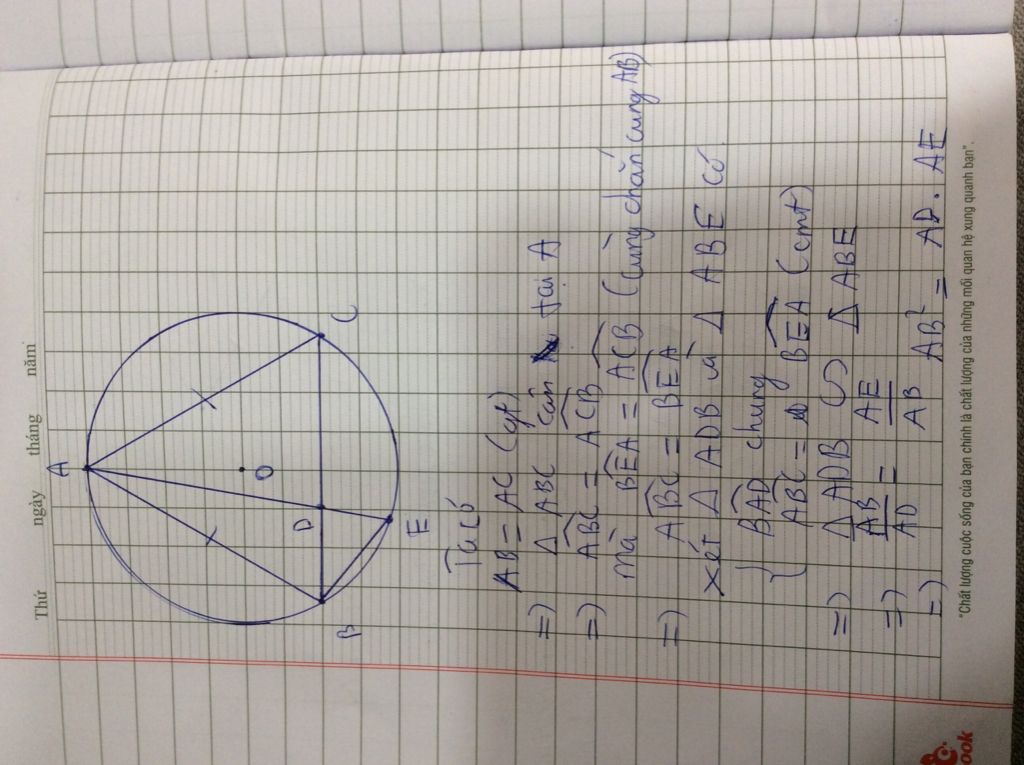 Thứ ngày tháng năm
A
O
B
D
C
E
Ta có
AB = AC (gt)
=) Δ ABC cân tại A
=) ABC = ACB
mà BEA = ACB (cùng chắn cung AB)
=) ABC = BEA
xét Δ ADB và Δ ABE có
{ BAD chung
ABC = BEA (cmt)
=) Δ ADB ∽ Δ ABE
=) AB/AD = AE/AB
=) AB² = AD. AE
"Chất lượng cuộc sống của bạn chính là chất lượng của những mối quan hệ xung quanh bạn".
ook